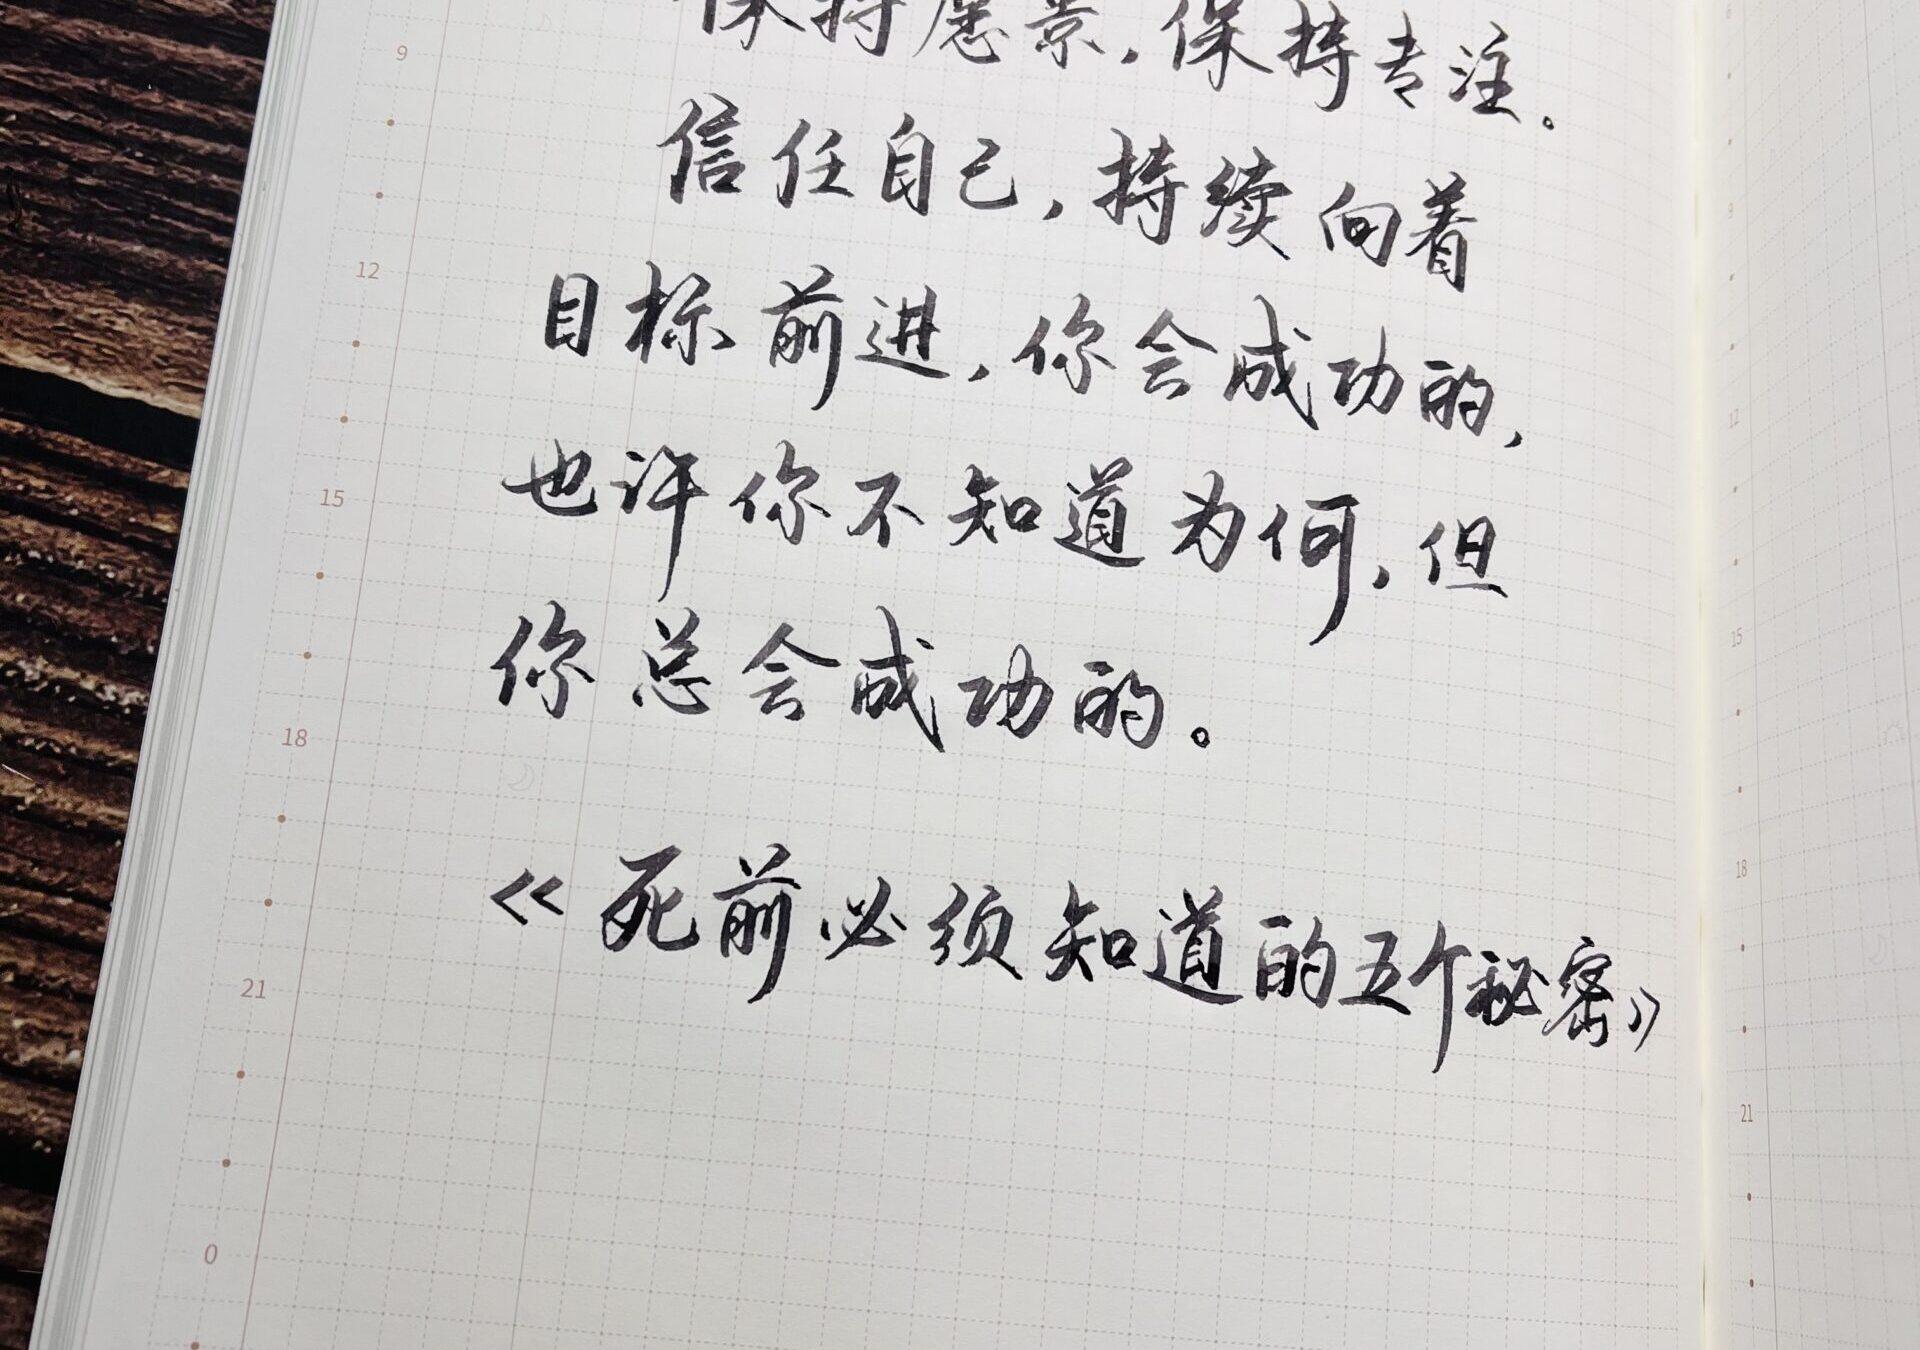 保持愿景，保持专注。
信任自己，持续向着
目标前进，你会成功的，
也许你不知道为何，但
你总会成功的。
《死前必须知道的五个秘密》
9
12
15
18
21
0
9
12
15
18
21